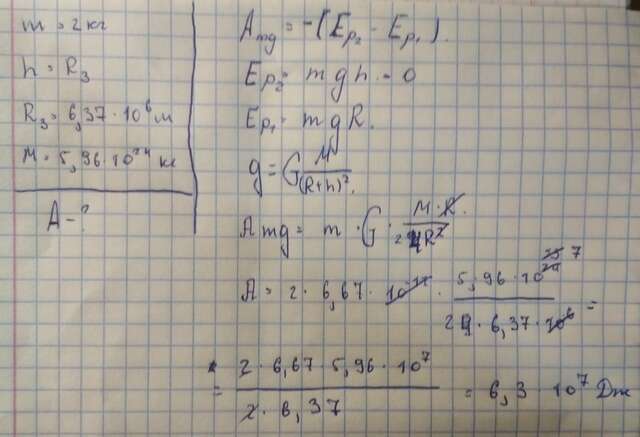 m = 2 кг
h = R₃
R₃ = 6,37 · 10⁶ м
M = 5,96 · 10²⁴ кг
A - ?
A mg = -(Ep₂ - Ep₁).
Ep₂ = mgh = 0
Ep₁ = mgR.
g = G M/(R+h)².
A mg = m · G · M·R/2R²
A = 2 · 6,67 · 10⁻¹¹ · 5,96 · 10²⁴ 7 / 2 · 6,37 · 10⁶ =
= 2 · 6,67 · 5,96 · 10⁷ / 2 · 6,37 = 6,3 · 10⁷ Дж